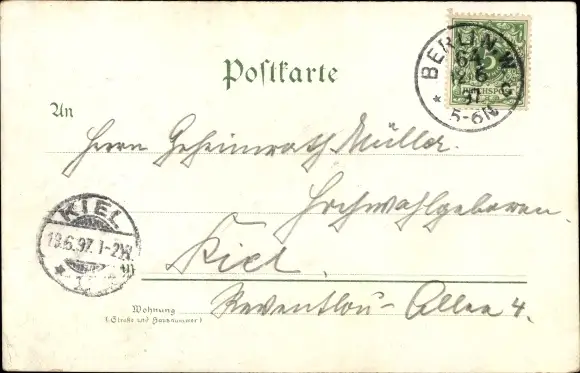 Postkarte
BERLIN. W.
64
12 6
97
5-6N
5
REICHSPOST
An
Herrn Geheimrath Müller.
Hochwohlgeboren.
KIEL
13.6.97. 1-2N.
Kiel.
Wohnung
(Straße und Hausnummer)
Reventlou-Allee 4.